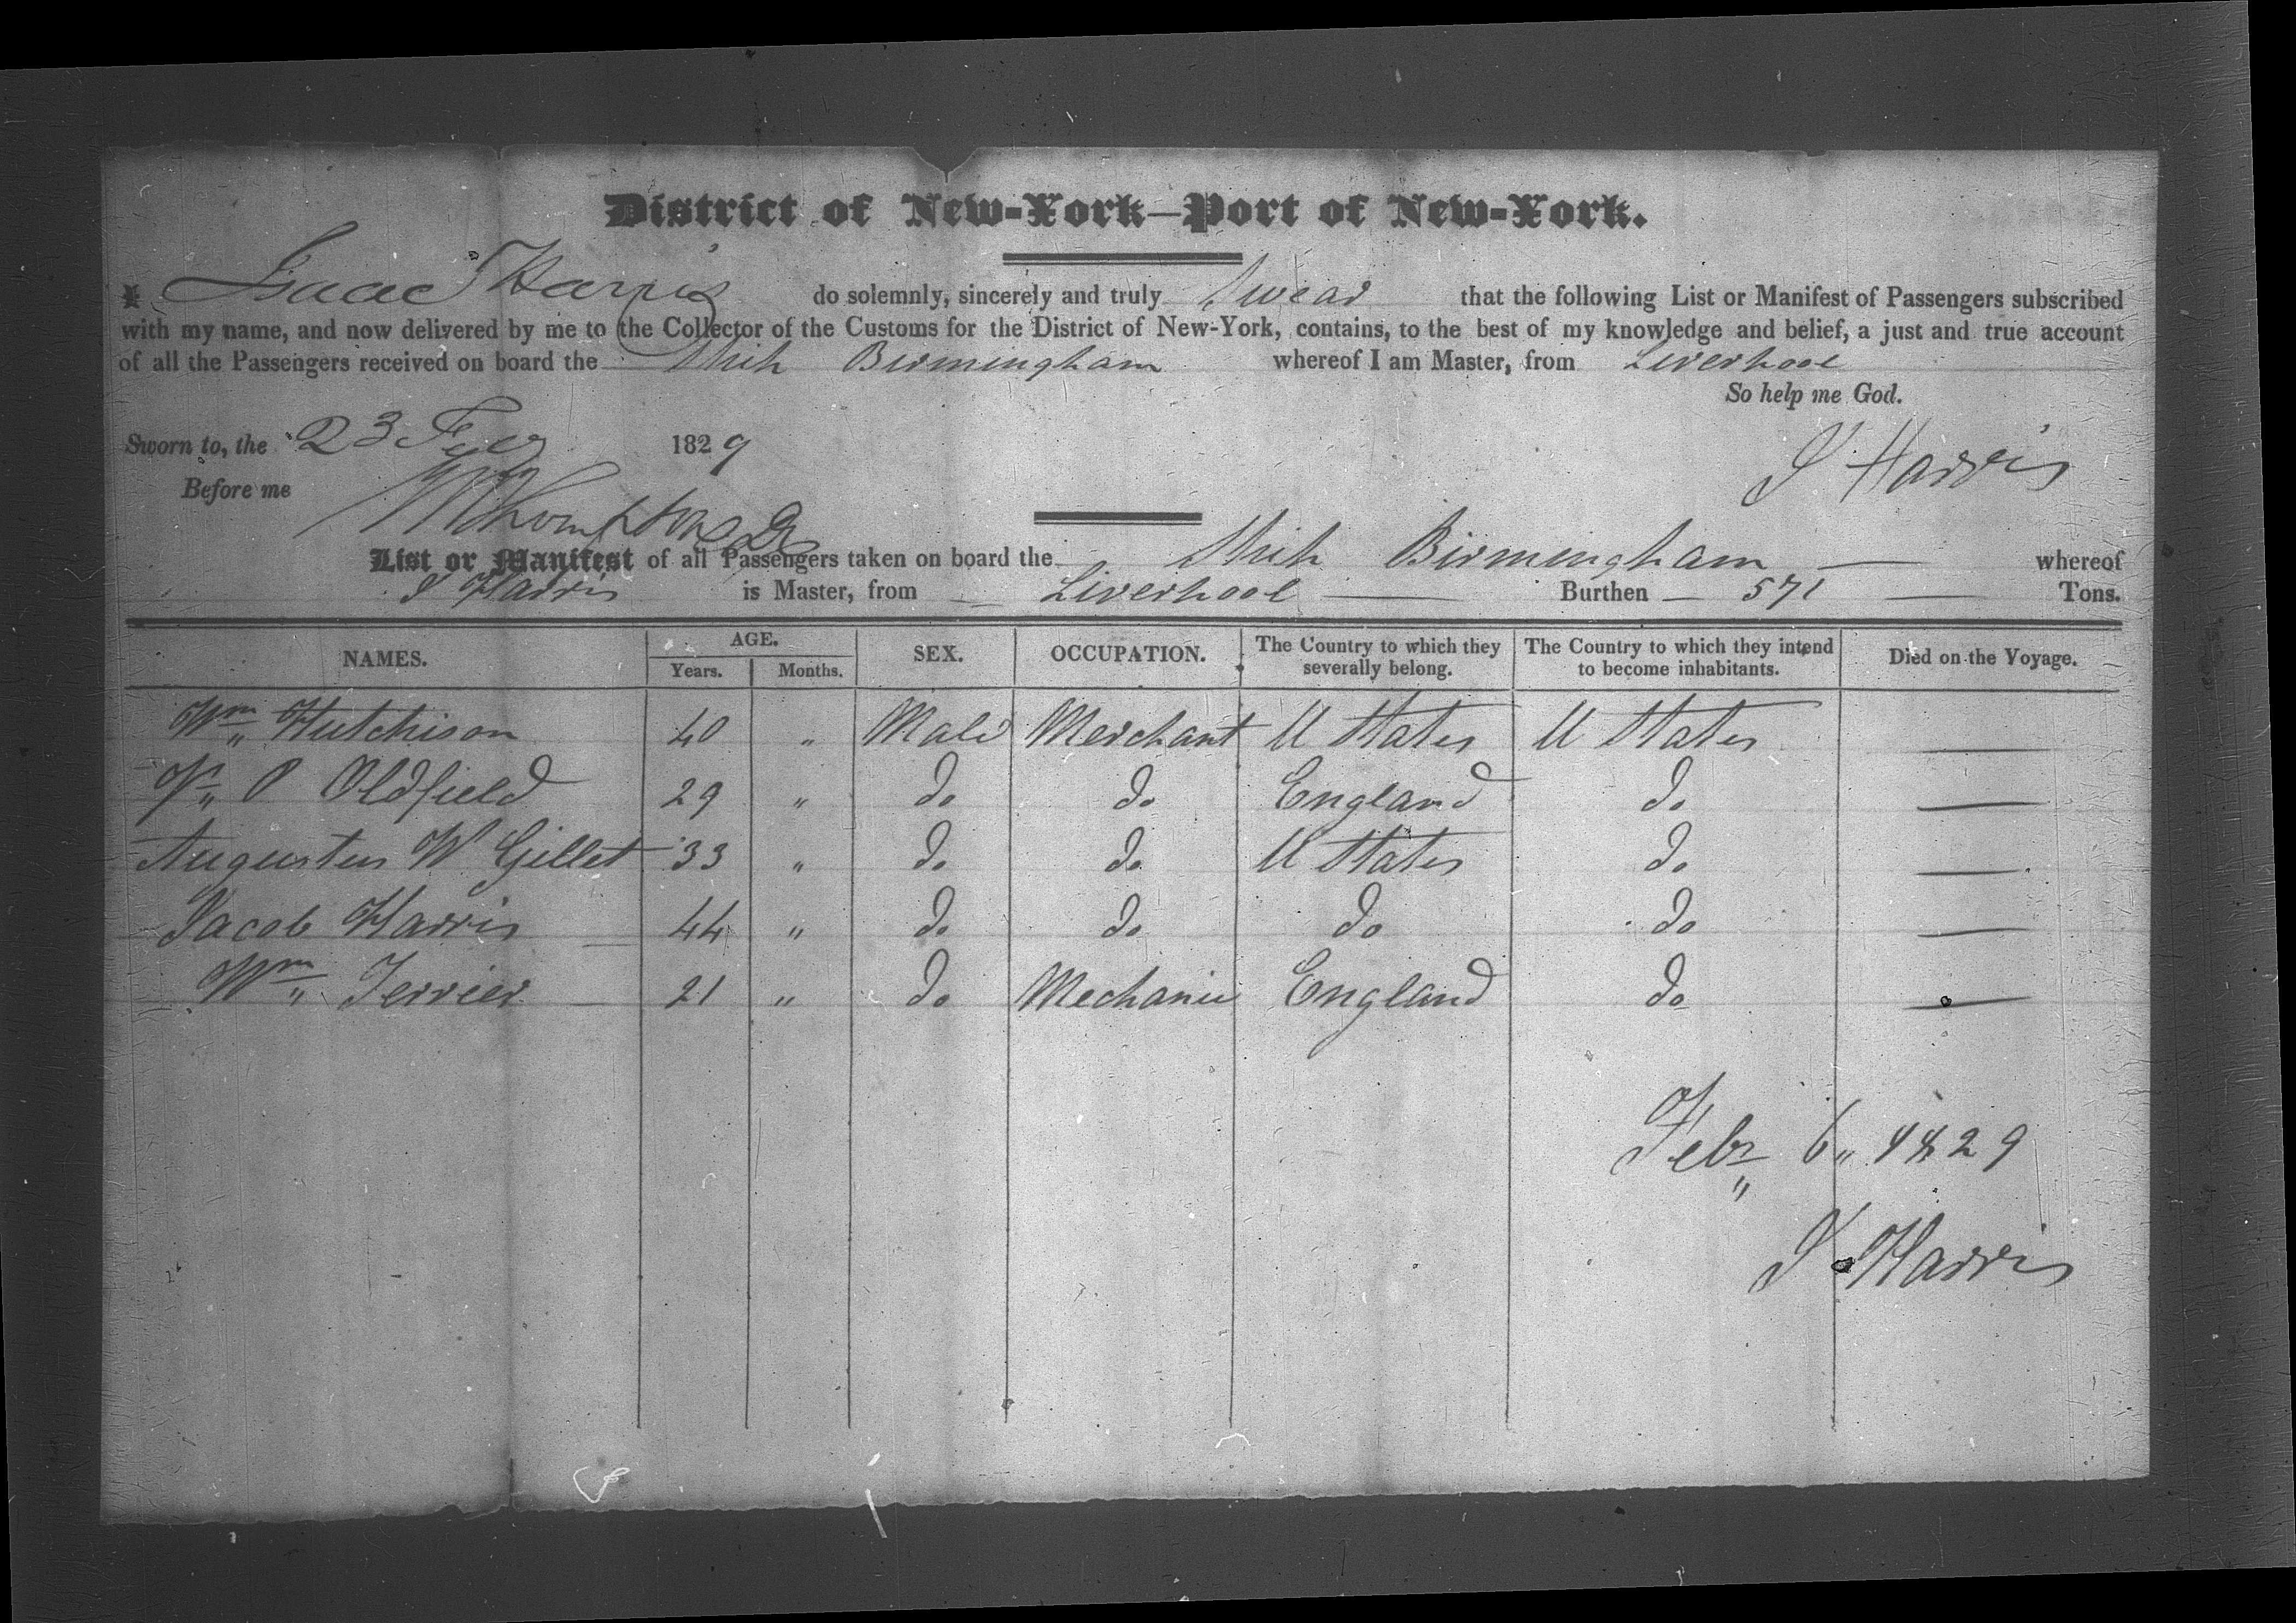 District of New-York—Port of New-York.
I Isaac Harris do solemnly, sincerely and truly Swear that the following List or Manifest of Passengers subscribed
with my name, and now delivered by me to the Collector of the Customs for the District of New-York, contains, to the best of my knowledge and belief, a just and true account
of all the Passengers received on board the Ship Birmingham whereof I am Master, from Liverpool
So help me God.
Sworn to, the 23 1829
I Harris
Before me
List or Manifest of all Passengers taken on board the Ship Birmingham — whereof
I Harris is Master, from — Liverpool — Burthen — 571 — Tons.
NAMES. AGE. Years. Months. SEX. OCCUPATION. The Country to which they severally belong. The Country to which they intend to become inhabitants. Died on the Voyage.
Wm Hutchison 40 " Male Merchant U States U States —
P Oldfield 29 " do do England do —
Augustus W Gillet 33 " do do U States do —
Jacob Harris — 44 " do do do do —
Wm Ferrier — 21 " do Mechanic England do —
Feby 6 1829
I Harris